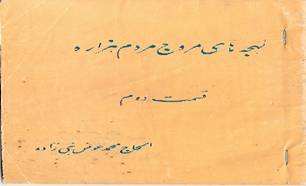 لهجه های مروج مردم هزاره
قسمت دوم
الحاج محمد عوض نبی زاده